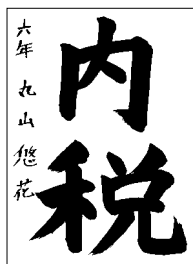 内税
六年 丸山悠花